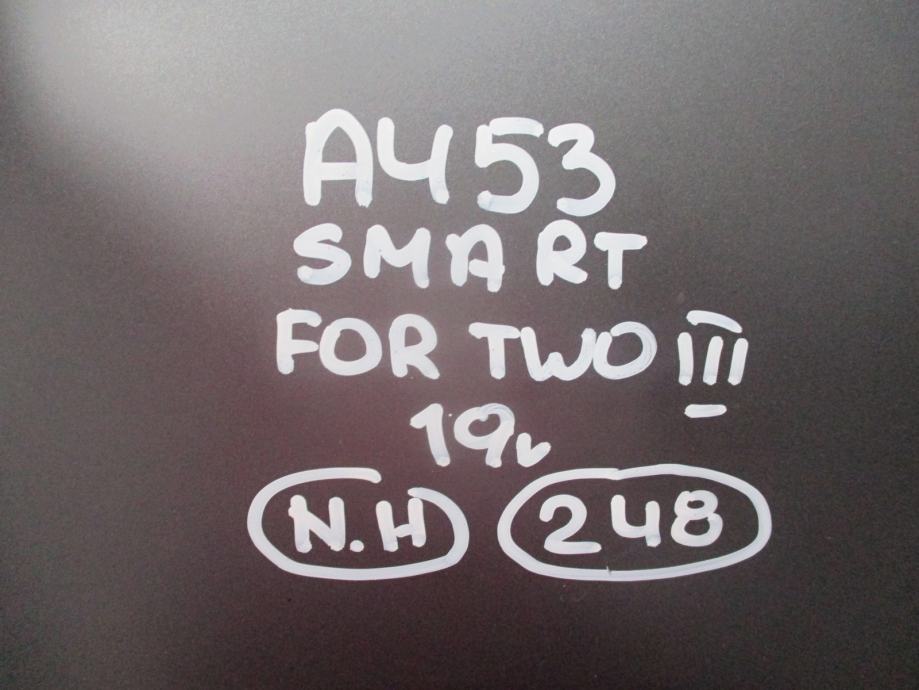 A453
SMART
FOR TWO III
19r
N.H 248